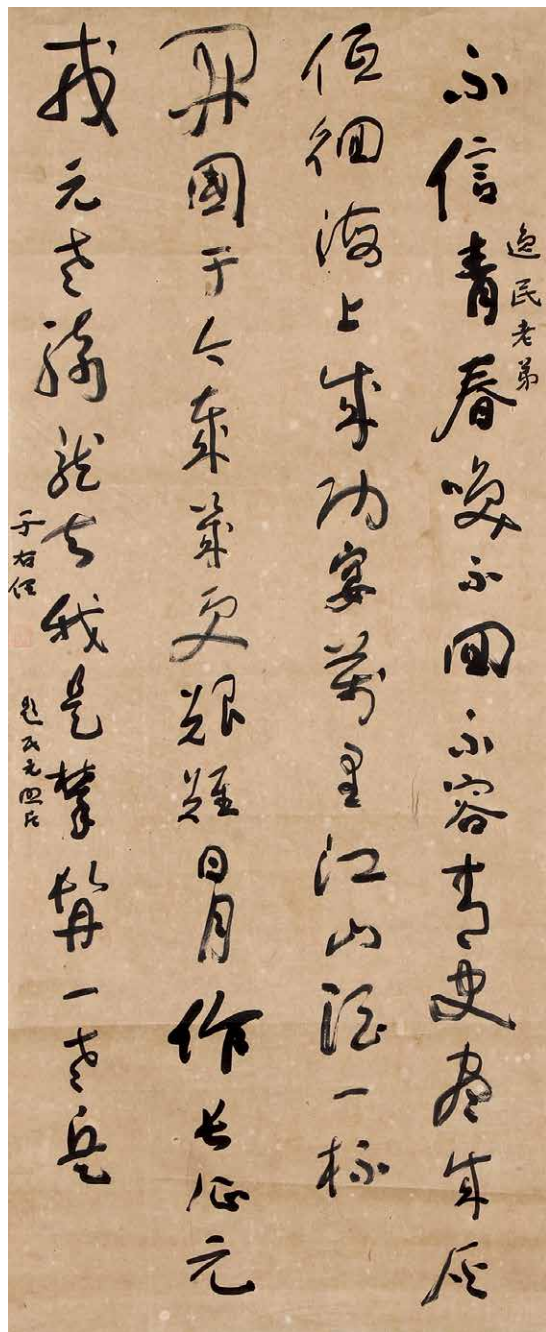 逸民老弟
不信青春喚不回不容青史盡成灰
低徊海上成功宴萬里江山酒一杯
開國于今歲幾更艱難日月作長征元
戎元老騎龍去我是攀髯一老兵
題民元照片
于右任